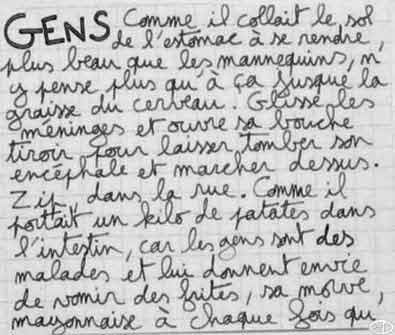 GENS Comme il collait le sol
de l'estomac à se rendre,
plus beau que les mannequins, n'
y pense plus qu'à ça jusque la
graisse du cerveau. Glisse les
méninges et ouvre sa bouche
tiroir pour laisser tomber son
encéphale et marcher dessus.
Zip, dans la rue. Comme il
portait un kilo de patates dans
l'intestin, car les gens sont des
malades et lui donnent envie
de vomir des frites, sa morve,
mayonnaise à chaque fois qu